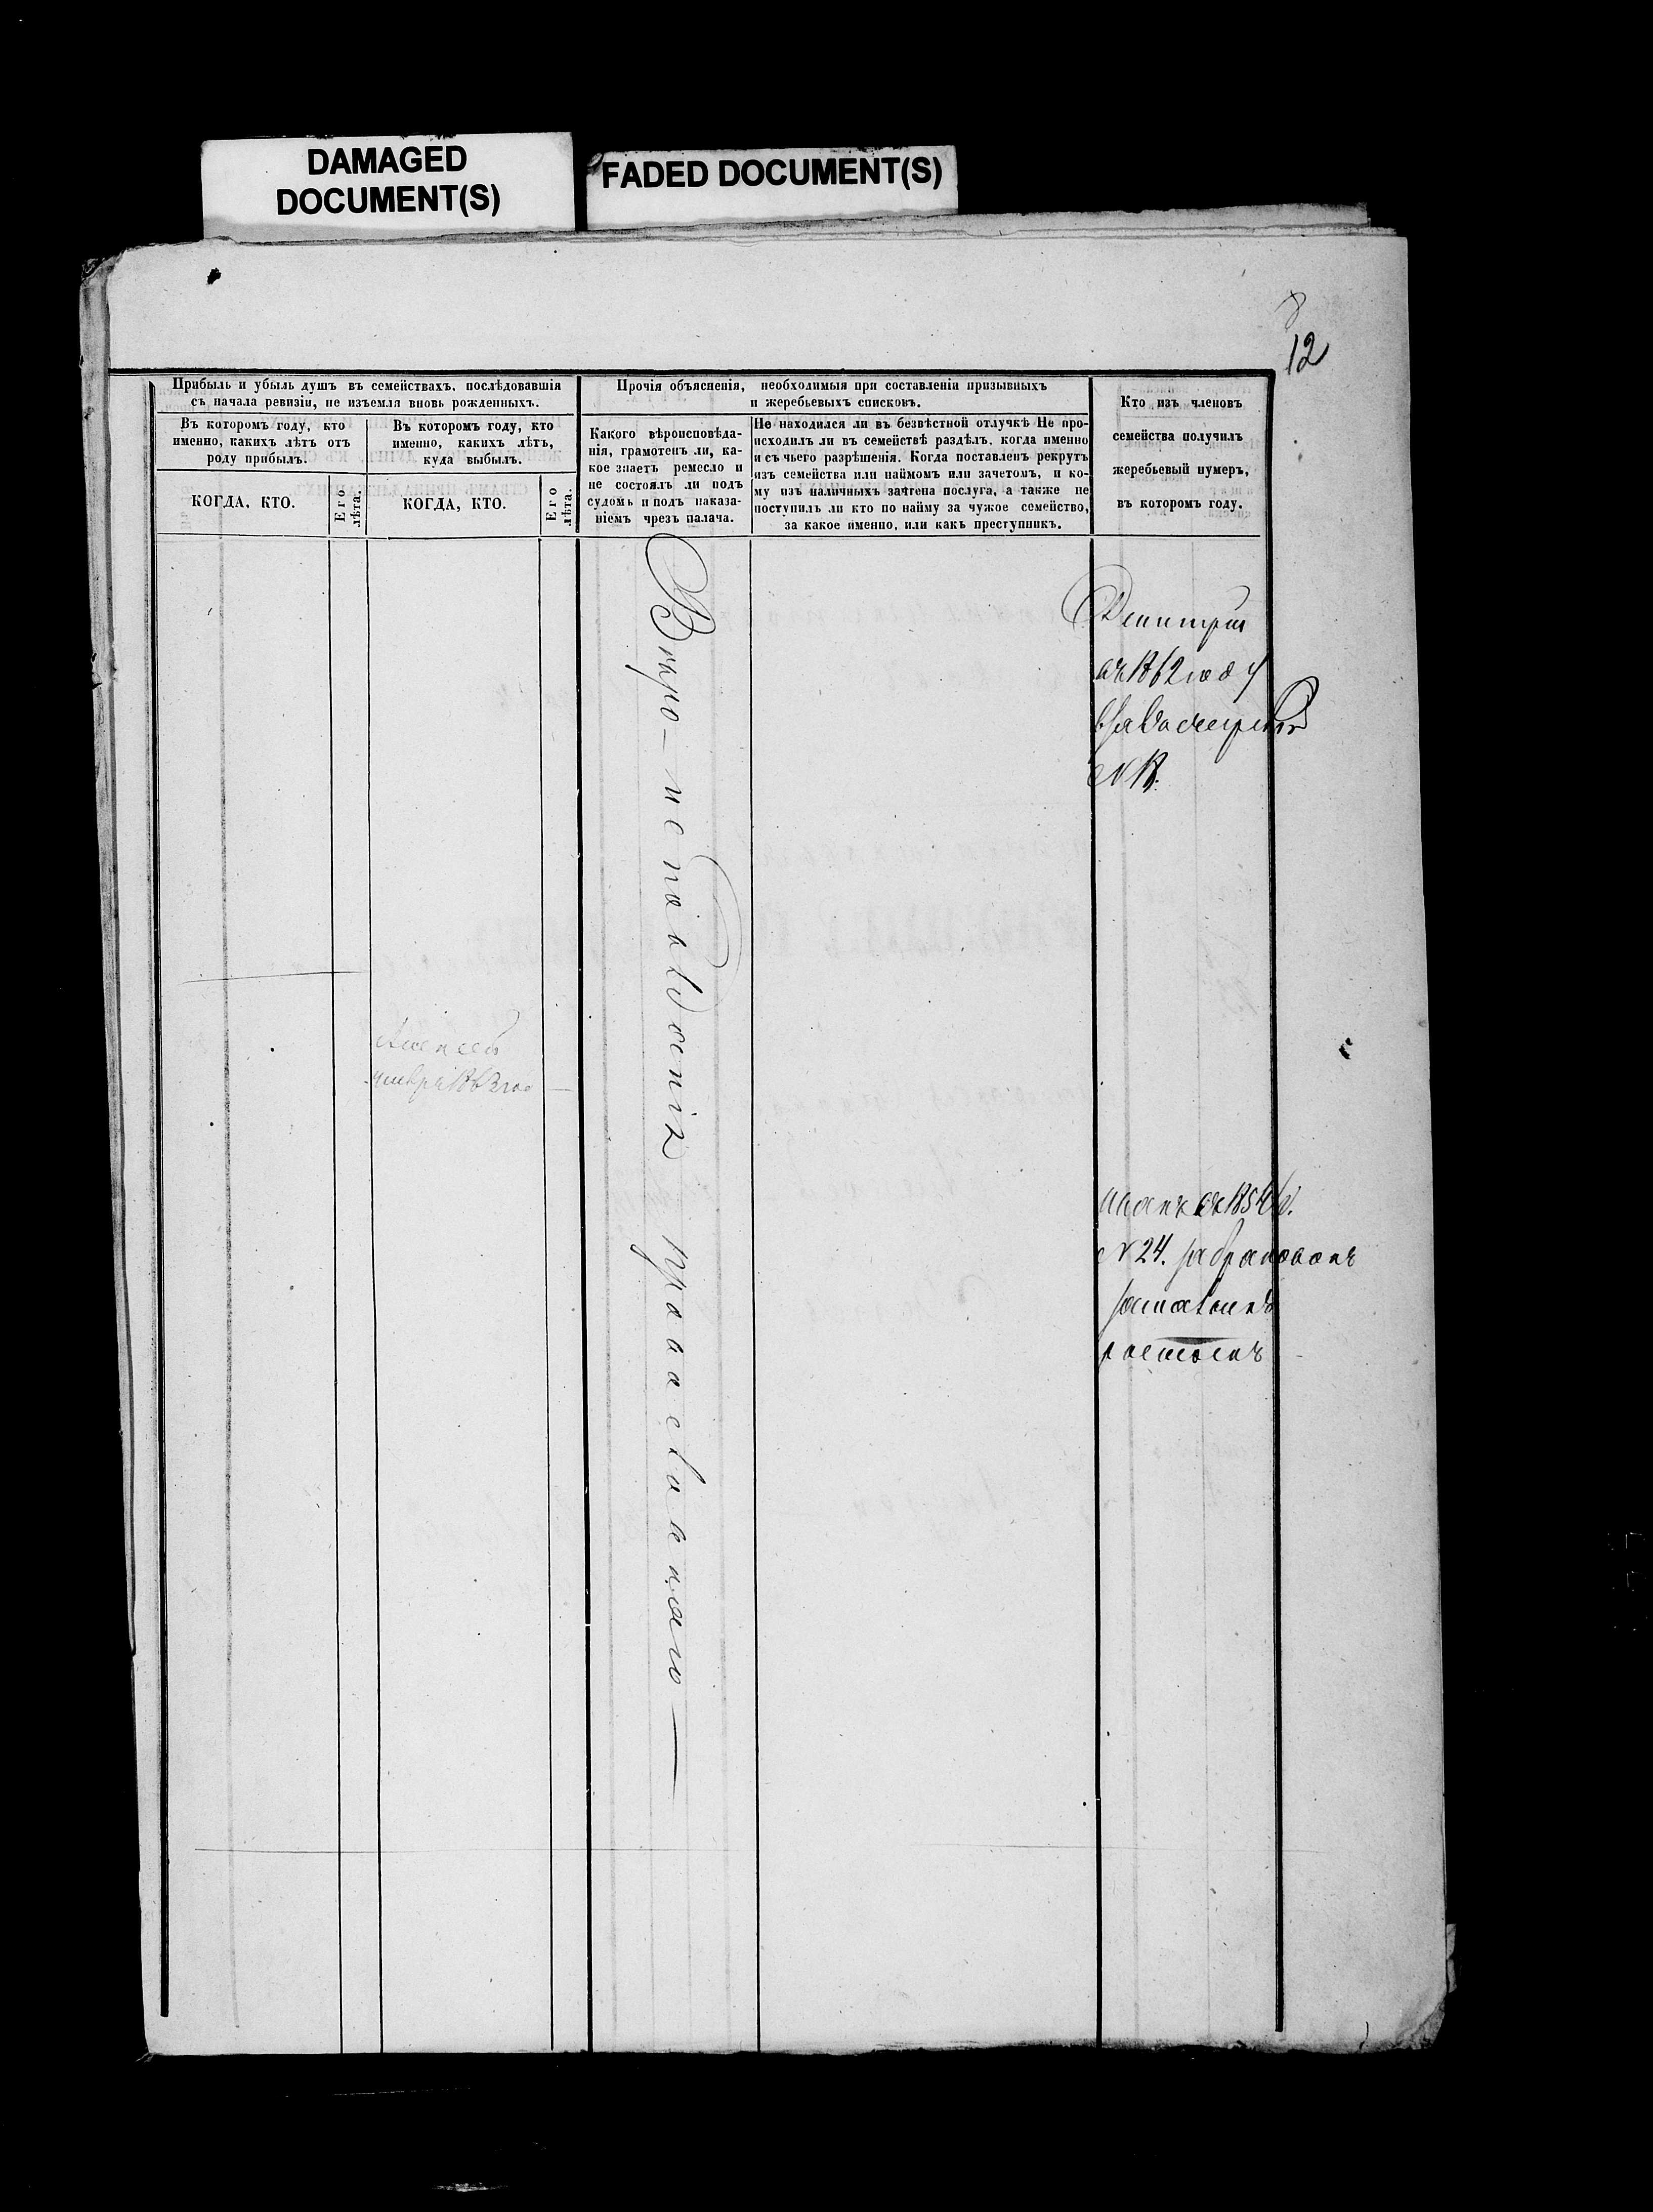 DAMAGED
DOCUMENT(S)
FADED DOCUMENT(S)
8
12
Прибыль и убыль душъ въ семействахъ, послѣдовавшія
съ начала ревизіи, не изъемля вновь рожденныхъ.
Въ которомъ году, кто
именно, какихъ лѣтъ отъ
роду прибылъ.
КОГДА, КТО.
Его
лѣта.
Въ которомъ году, кто
именно, какихъ лѣтъ,
куда выбылъ.
КОГДА, КТО.
Его
лѣта.
Прочія объясненія, необходимыя при составленіи призывныхъ
и жеребьевыхъ списковъ.
Какого вѣроисповѣда-
нія, грамотенъ ли, ка-
кое знаетъ ремесло и
не состоялъ ли подъ
судомъ и подъ наказа-
ніемъ чрезъ палача.
Не находился ли въ безвѣстной отлучкѣ Не про-
исходилъ ли въ семействѣ раздѣлъ, когда именно
и съ чьего разрѣшенія. Когда поставленъ рекрутъ
изъ семейства или наймомъ или зачетомъ, и ко-
му изъ наличныхъ зачтена послуга, а также не
поступилъ ли кто по найму за чужое семейство,
за какое именно, или какъ преступникъ.
Кто изъ членовъ
семейства получилъ
жеребьевый нумеръ,
въ которомъ году.
Вѣро-исповѣданія православнаго
Алексѣй
умеръ 1863 год
Дмитрій
въ 1862 году
N 18.
Иванъ въ 185
N 24. забракованъ
ростомъ